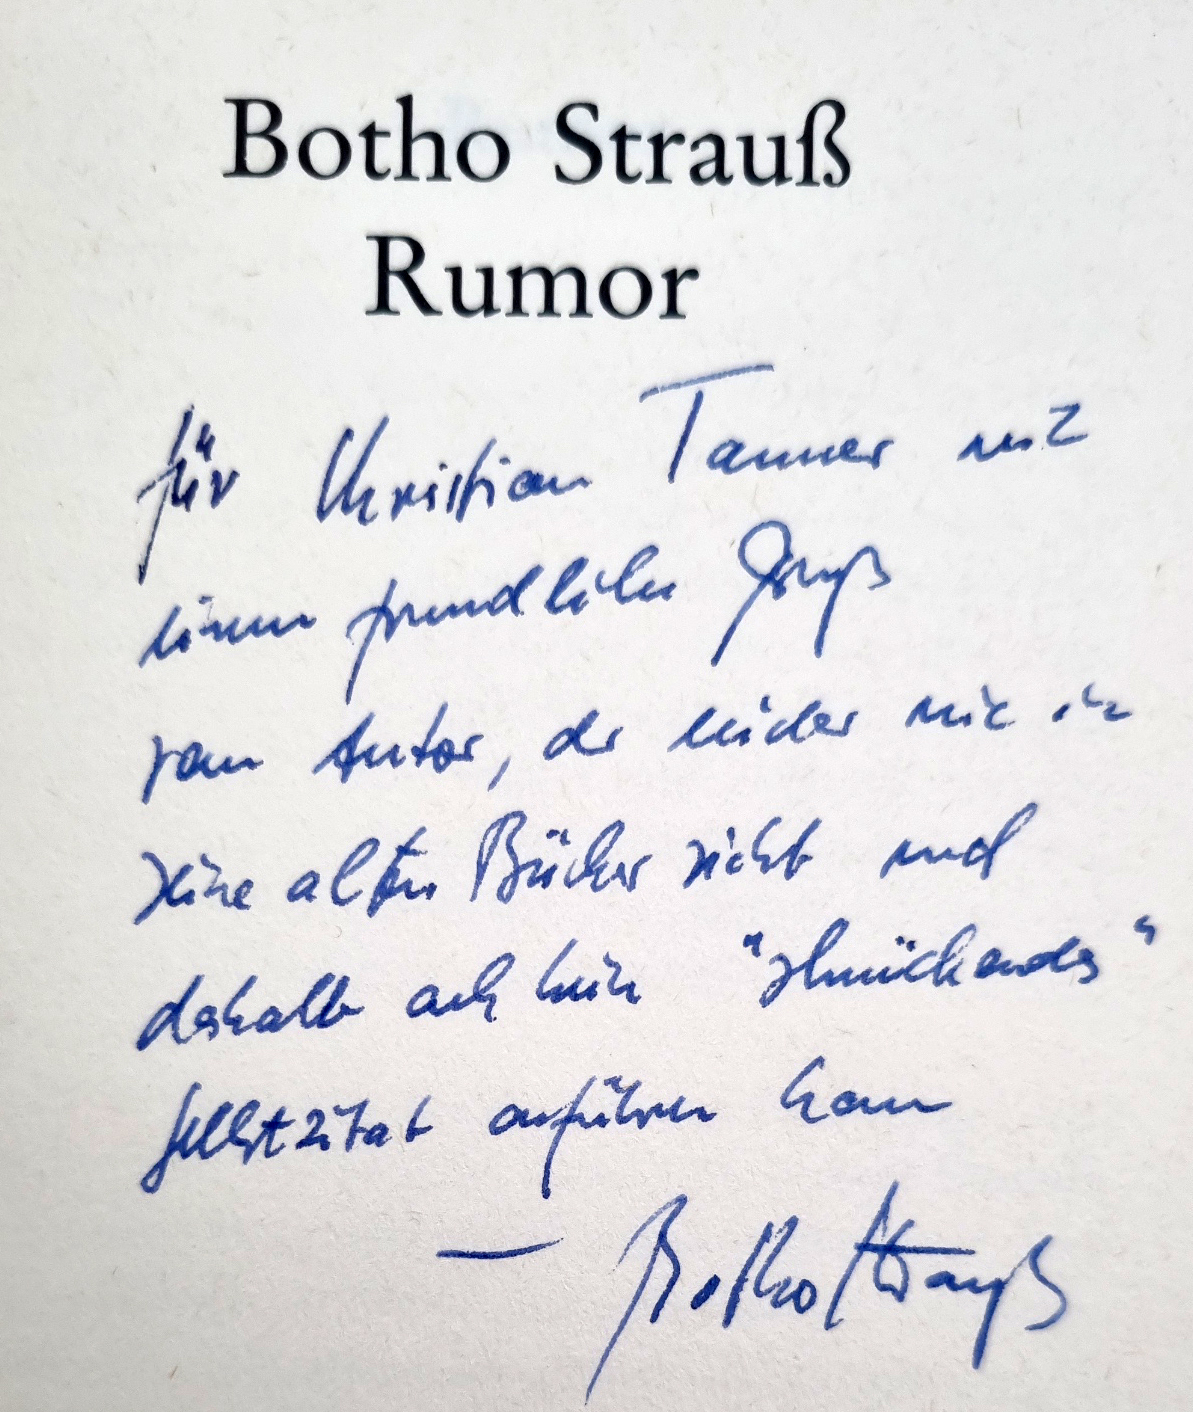 Botho Strauß
Rumor
für Christian Tanner mit
einem freundlichen Gruß
vom Autor, der leider nie in
seine alten Bücher sieht und
deshalb auch kein "schmückendes"
Selbstzitat anführen kann
— Botho Strauß